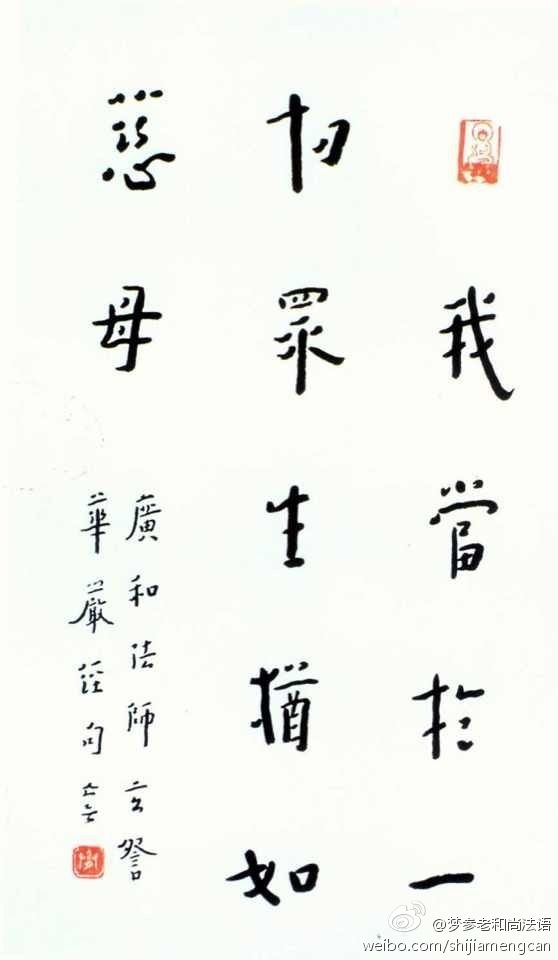 我當於一
切眾生猶如
慈母
廣和法師玄詧
華嚴經句
@梦参老和尚法语
weibo.com/shijiamengcan